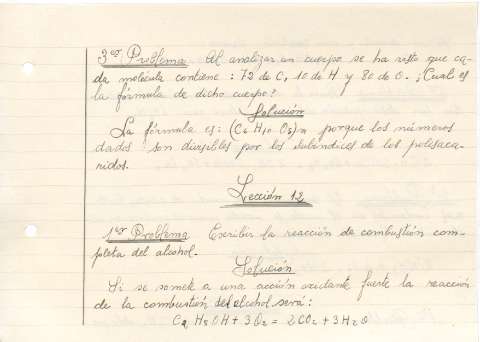 3er Problema Al analizar un cuerpo se ha visto que ca-
da molécula contiene: 72 de C, 10 de H y 80 de O. ¿Cual es
la fórmula de dicho cuerpo?
Solución
La fórmula es: (C6 H10 O5)n porque los números
dados son divisibles por los subíndices de los polisaca-
ridos.
Lección 12
1er Problema Escribir la reacción de combustión com-
pleta del alcohol.
Solución
Si se somete a una acción oxidante fuerte la reacción
de la combustión del alcohol será:
C2 H5 OH + 3O2 = 2CO2 + 3H2O